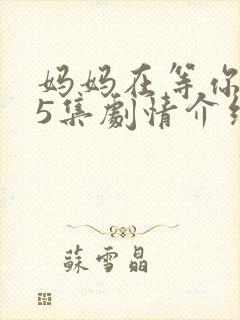 妈妈在等你
5集劇情介绍
蘇雪晶